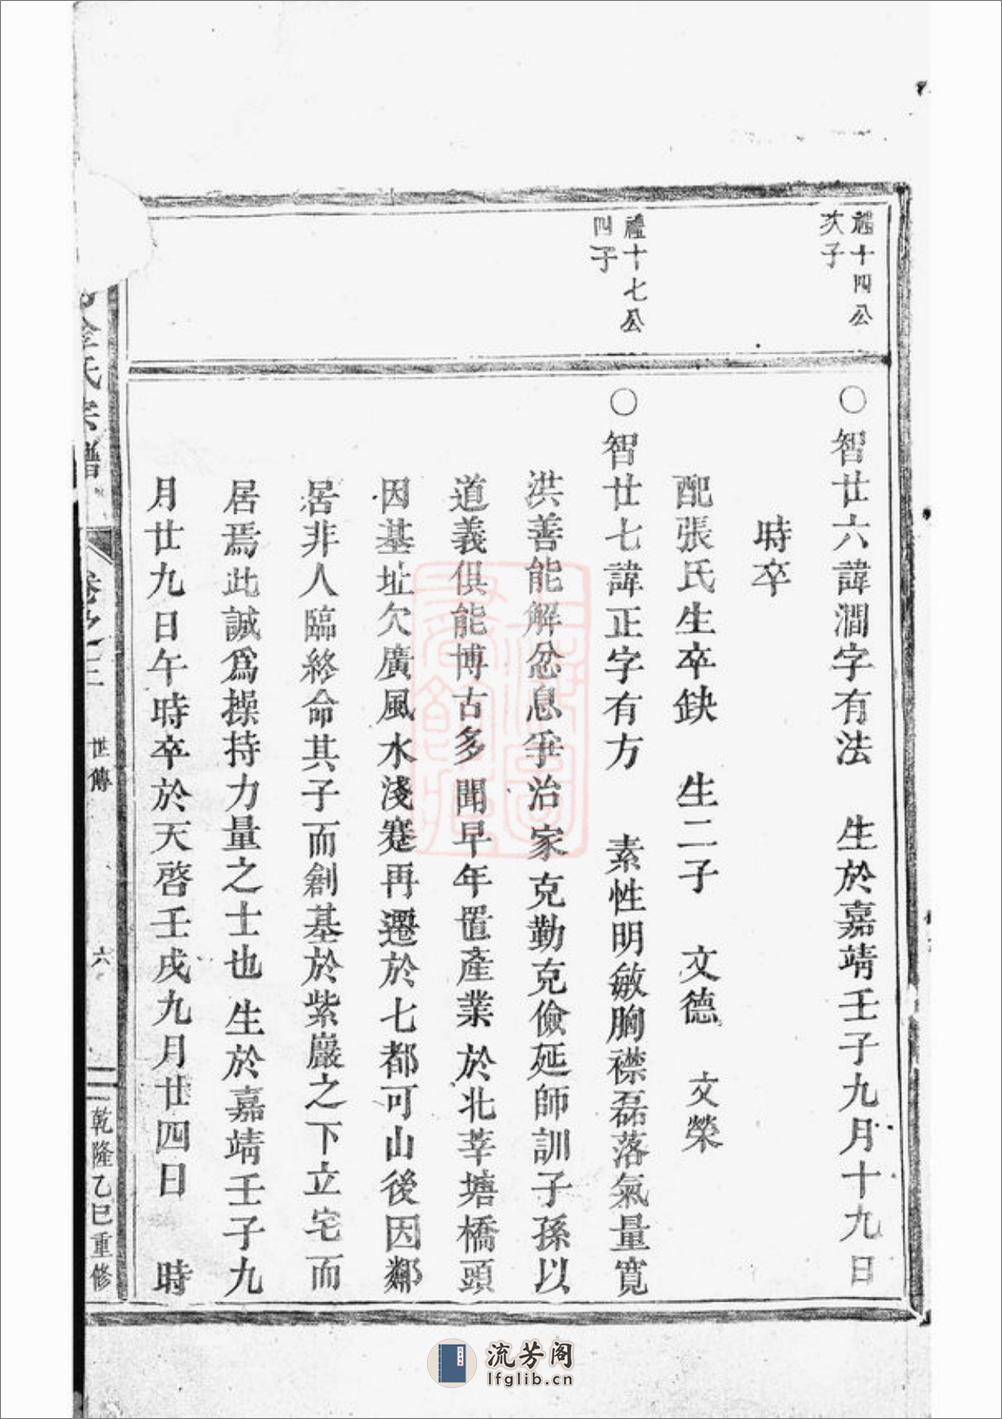 禮十四公
次子
○智廿六諱澗字有法　生於嘉靖壬子九月十九日
時卒
配張氏生卒缺　生二子　文德　文榮
禮十七公
四子
○智廿七諱正字有方　素性明敏胸襟磊落氣量寬
洪善能解忿息爭治家克勤克儉延師訓子孫以
道義俱能博古多聞早年置產業於北莘塘橋頭
因基址欠廣風水淺蹇再遷於七都可山後因鄰
居非人臨終命其子而創基於紫巖之下立宅而
居焉此誠爲操持力量之士也　生於嘉靖壬子九
月廿九日午時卒於天啓壬戌九月廿四日　時
氏宗譜
卷之二
世傳
六
乾隆乙巳重修
流芳阁
lfglib.cn